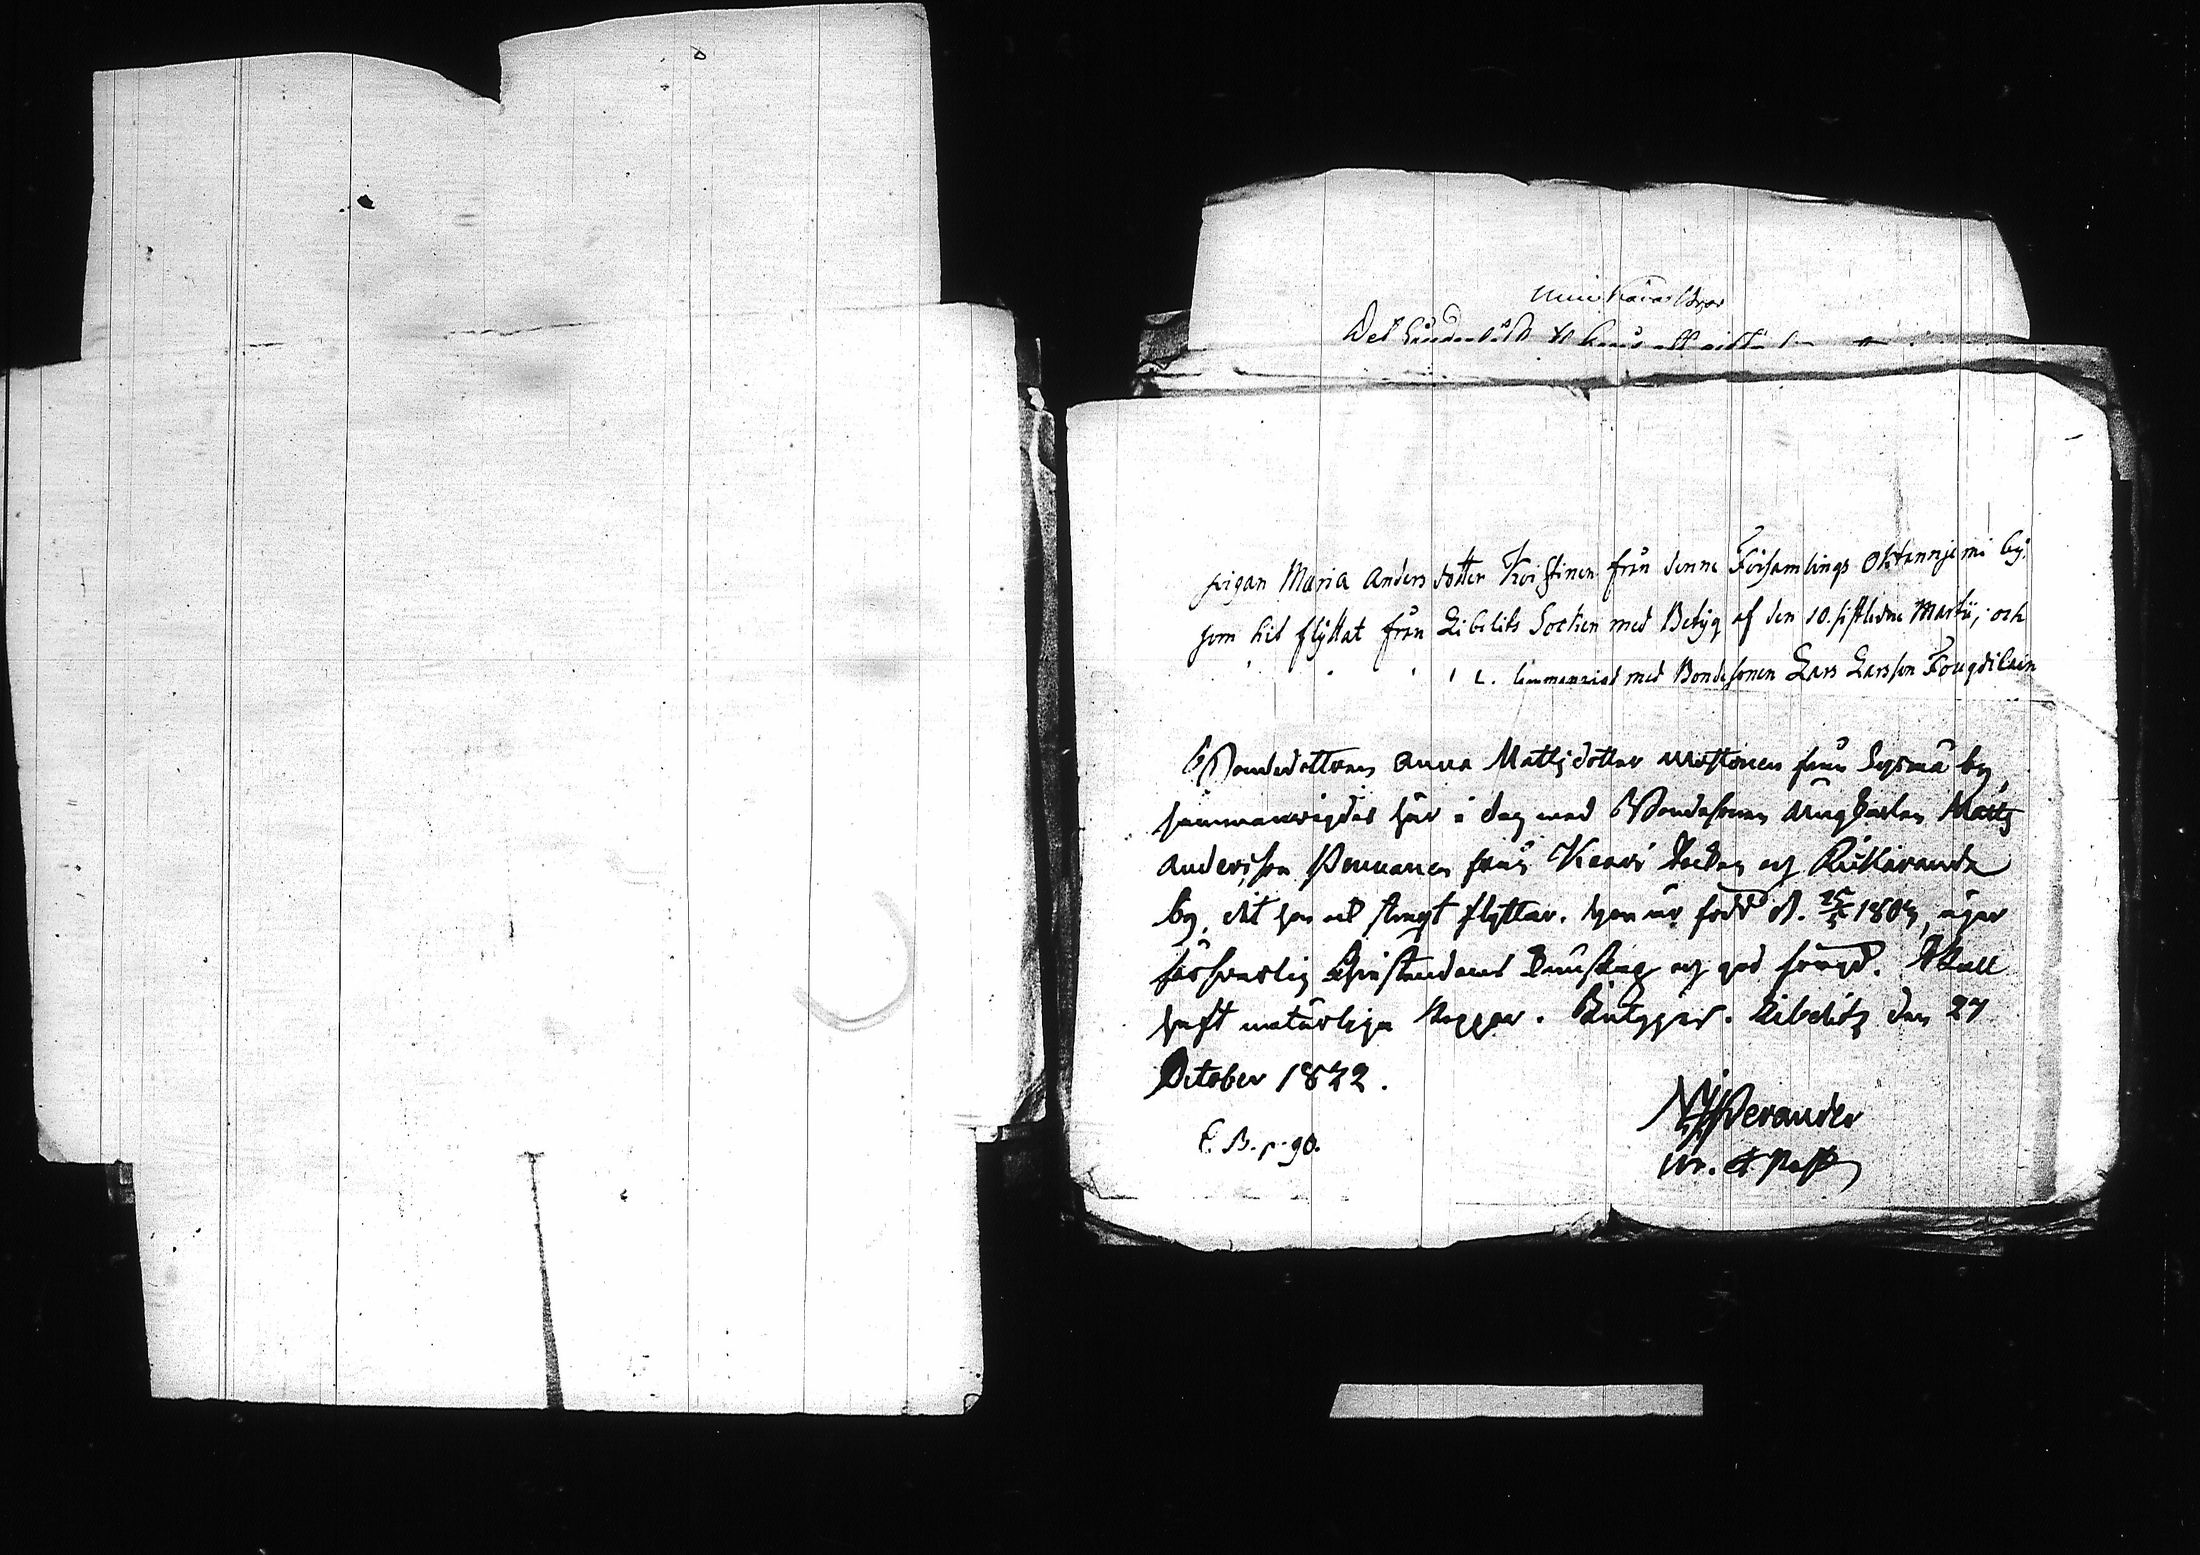 Min Käre Bror
Det
pigan Maria Anders dotter Koistinen från denne Församlings Oktannjemi by,
som hit flyttat från Libelits Socken med Betyg af den 10. sistledne Martii, och
sammanvied med Bondesonen Lars Larsson
Bondedottren Anna Mattsdotter Mustonen från Sysmä by,
sammanvigdes här i dag med Bondesonen Ungkarlen Matts
Andersson Pennanen från Kaavi Socken och Rickaranda
by, dit hon nu strax flyttar. Hon är född d. 1804, äger
försvarlig Christendoms kunskap och god frägd. Skall
haft naturliga koppor. Betygar. Libelitz den 27
October 1822.
E. B. p. 90.
Perander